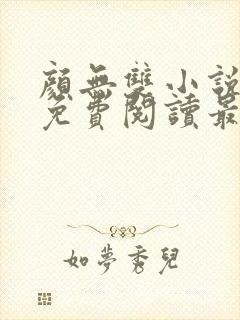 顏無雙小說
免費閱讀最
如夢秀兒